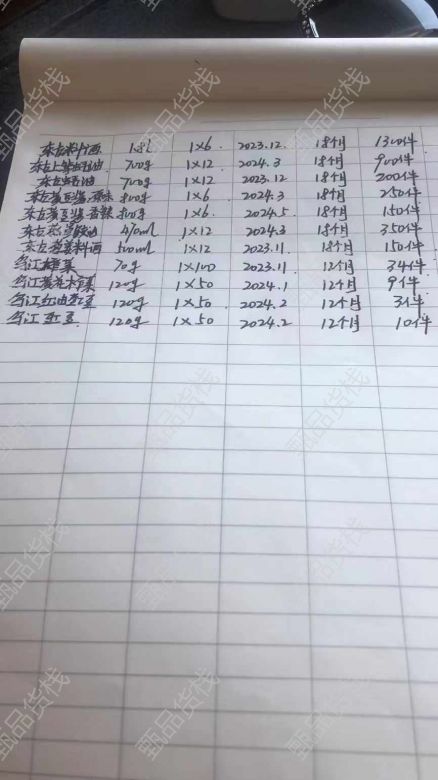 东古料酒 1.8L 1×6 2023.12 18个月 1300件
东古上等蚝油 700g 1×12 2024.3 18个月 900件
东古蚝油 700g 1×12 2023.12 18个月 200件
东古黄豆酱 原味 800g 1×6 2024.3 18个月 250件
东古黄豆酱 香辣 800g 1×6 2024.5 18个月 150件
东古 豉油 410ml 1×12 2024.3 18个月 350件
东古葱姜料酒 500ml 1×12 2023.11 18个月 150件
乌江榨菜 70g 1×100 2023.11 12个月 34件
乌江黄花木耳菜 120g 1×50 2024.1 12个月 9件
乌江红油豇豆 120g 1×50 2024.2 12个月 3件
乌江豇豆 120g 1×50 2024.2 12个月 10件
甄品货栈